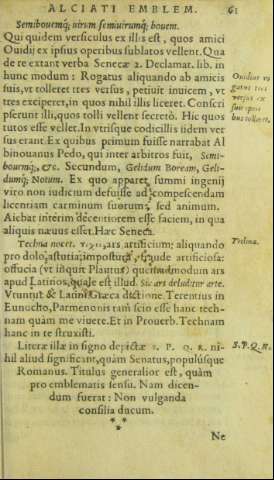 ALCIATI EMBLEM. 61
Semibouemq́; uirum semuirumq́; bouem.
Qui quidem versiculus ex illis est, quos amici
Ouidij ex ipsius operibus sublatos vellent. Qua
de re extant verba Senecæ 2. Declamat. lib. in
hunc modum: Rogatus aliquando ab amicis
suis, vt tolleret tres versus, petiuit inuicem, vt
tres exciperet, in quos nihil illis liceret. Conscri
pserunt illi, quos tolli vellent secretò. Hic quos
tutos esse vellet. In vtrisque codicillis iidem ver
sus erant. Ex quibus primum fuisse narrabat Al
binouanus Pedo, qui inter arbitros fuit, Semi-
bouemq́;, &c. Secundum, Gelidum Boream, Geli-
dumq́; Notum. Ex quo apparet, summi ingenij
viro non iudicium defuisse ad compescendam
licentiam carminum suorum, sed animum.
Aiebat interim decentiorem esse faciem, in qua
aliquis næuus esset. Hæc Seneca.
Techna nocet. τέχνη, ars, artificium; aliquando
pro dolo, astutia, impostura, fraude artificiosa:
offucia (vt inquit Plautus) quemadmodum ars
apud Latinos, quale est illud. Sic ars deluditur arte.
Vtuntur & Latini Græca dictione. Terentius in
Eunucho, Parmenonis tam scio esse hanc tech-
nam quàm me viuere. Et in Prouerb. Technam
hanc in te struxisti.
Literæ illæ in signo depictæ S. P. Q. R. ni-
hil aliud significant, quàm Senatus, populúsque
Romanus. Titulus generalior est, quàm
pro emblematis sensu. Nam dicen-
dum fuerat: Non vulganda
consilia ducum.
* * *
Ne
Ouidius ro
gatus tres
versus ex
suis quos
bus tolleret.
Techna.
S. P. Q. R.